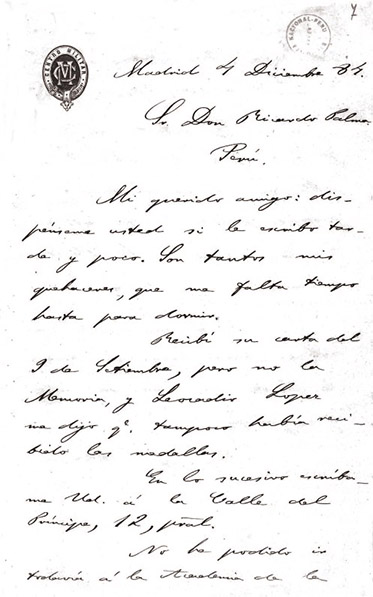 7
CENTRO MILITAR
NACIONAL-PERÚ
Madrid 4 Diciembre 84.
Sr. Don Ricardo Palma.
Perú.
Mi querido amigo: dis-
pénseme usted si le escribo tar-
de y poco. Son tantos mis
quehaceres, que me falta tiempo
hasta para dormir.
Recibí su carta del
9 de Setiembre, pero no la
Memoria, y Leocadio Lopez
me dijo q.e tampoco habia reci-
bido las medallas.
En lo sucesivo escríba-
me Ud. á la Calle del
Príncipe, 12, pral.
No he podido ir
todavía á la Academia de la